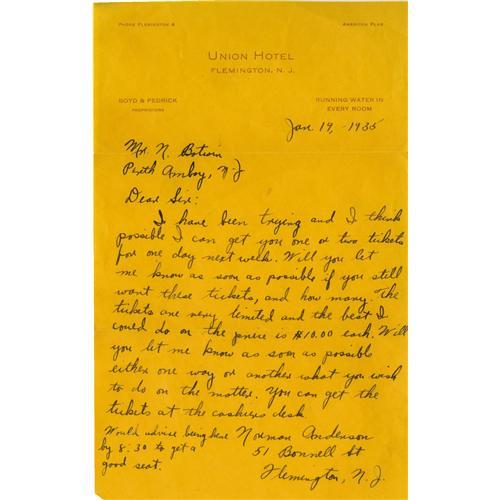 PHONE FLEMINGTON 8
AMERICAN PLAN
UNION HOTEL
FLEMINGTON, N. J.
BOYD & PEDRICK
PROPRIETORS
RUNNING WATER IN
EVERY ROOM
Jan. 19, -1935
Mr. N. Botwin
Perth Amboy, N-J
Dear Sir:
I have been trying and I think
possible I can get you one or two tickets
for one day next week. Will you let
me know as soon as possible if you still
want these tickets, and how many. The
tickets are very limited and the best I
could do on the price is $10.00 each. Will
you let me know as soon as possible
either one way or another what you wish
to do on the matter. You can get the
tickets at the cashiers desk
Would advise being here
by 8:30 to get a
good seat.
Norman Anderson
51 Bonnell St
Flemington, N. J.